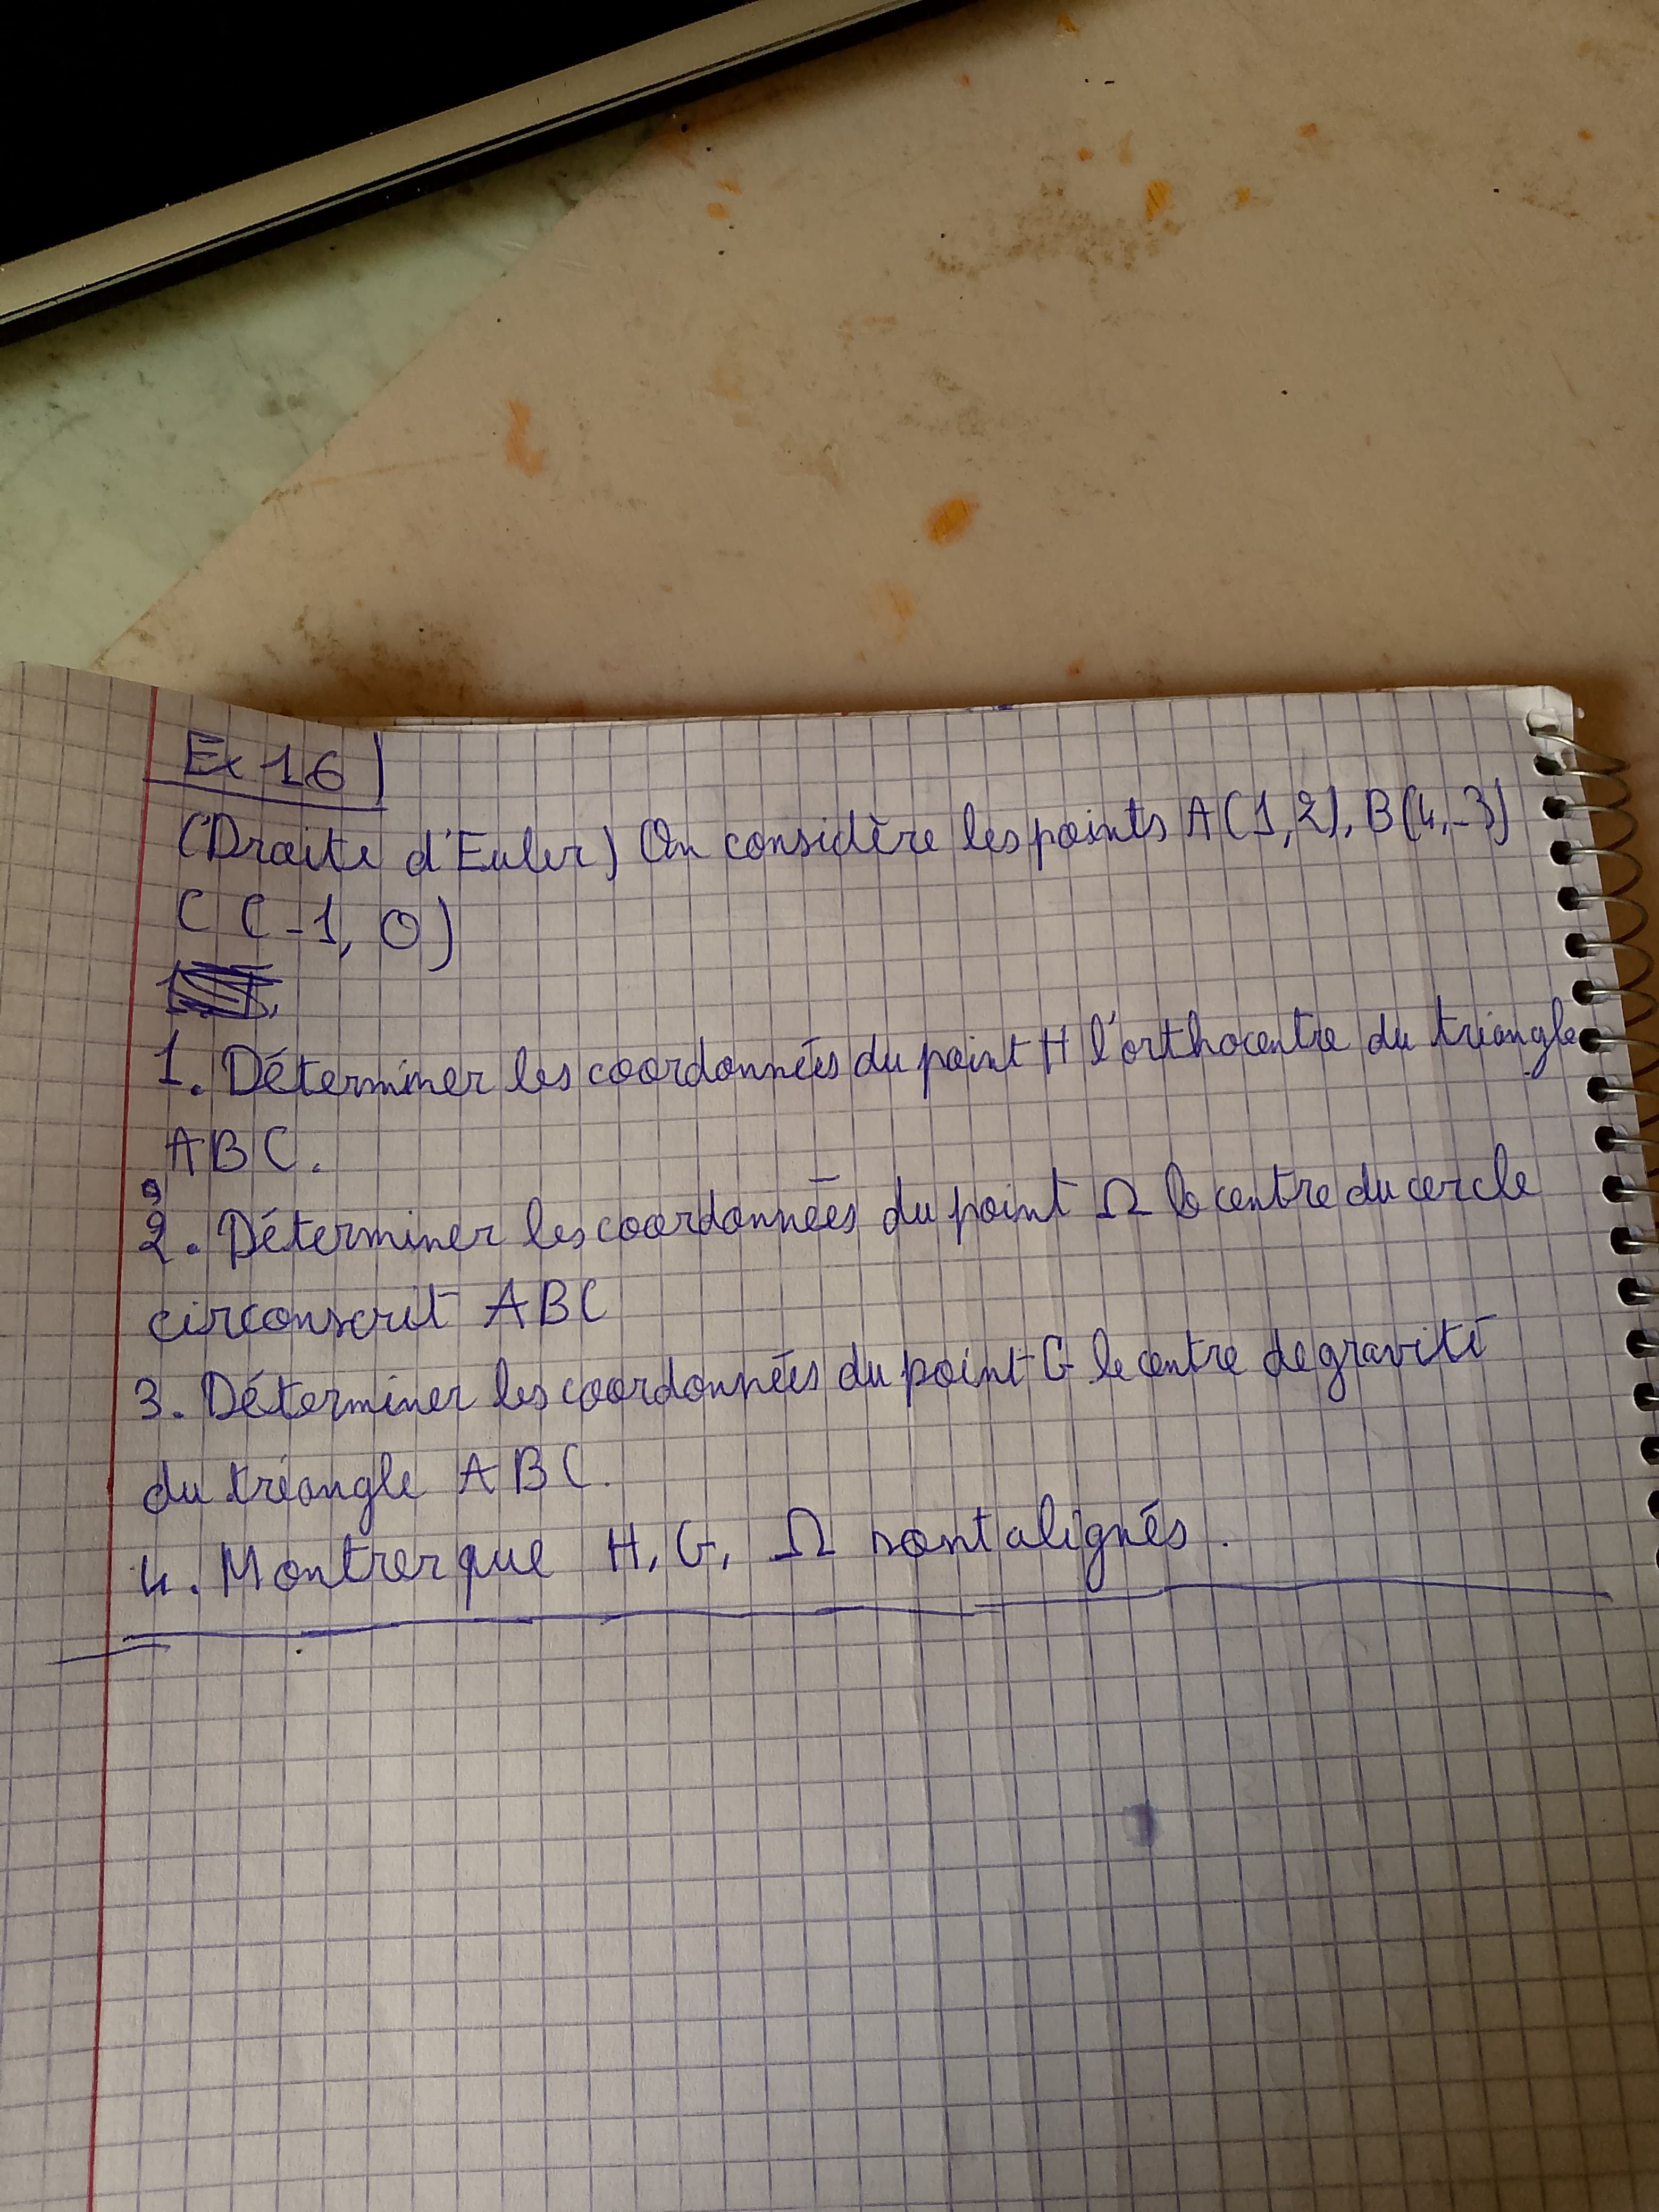 Ex 16)
(Droite d'Euler) On considère les points A(1,2), B(4,-3)
C (-1, 0)
1. Déterminer les coordonnées du point H l'orthocentre du triangle
ABC.
2. Déterminer les coordonnées du point Ω le centre du cercle
circonscrit ABC
3. Déterminer les coordonnées du point G le centre de gravité
du triangle ABC.
4. Montrer que H, G, Ω sont alignés.